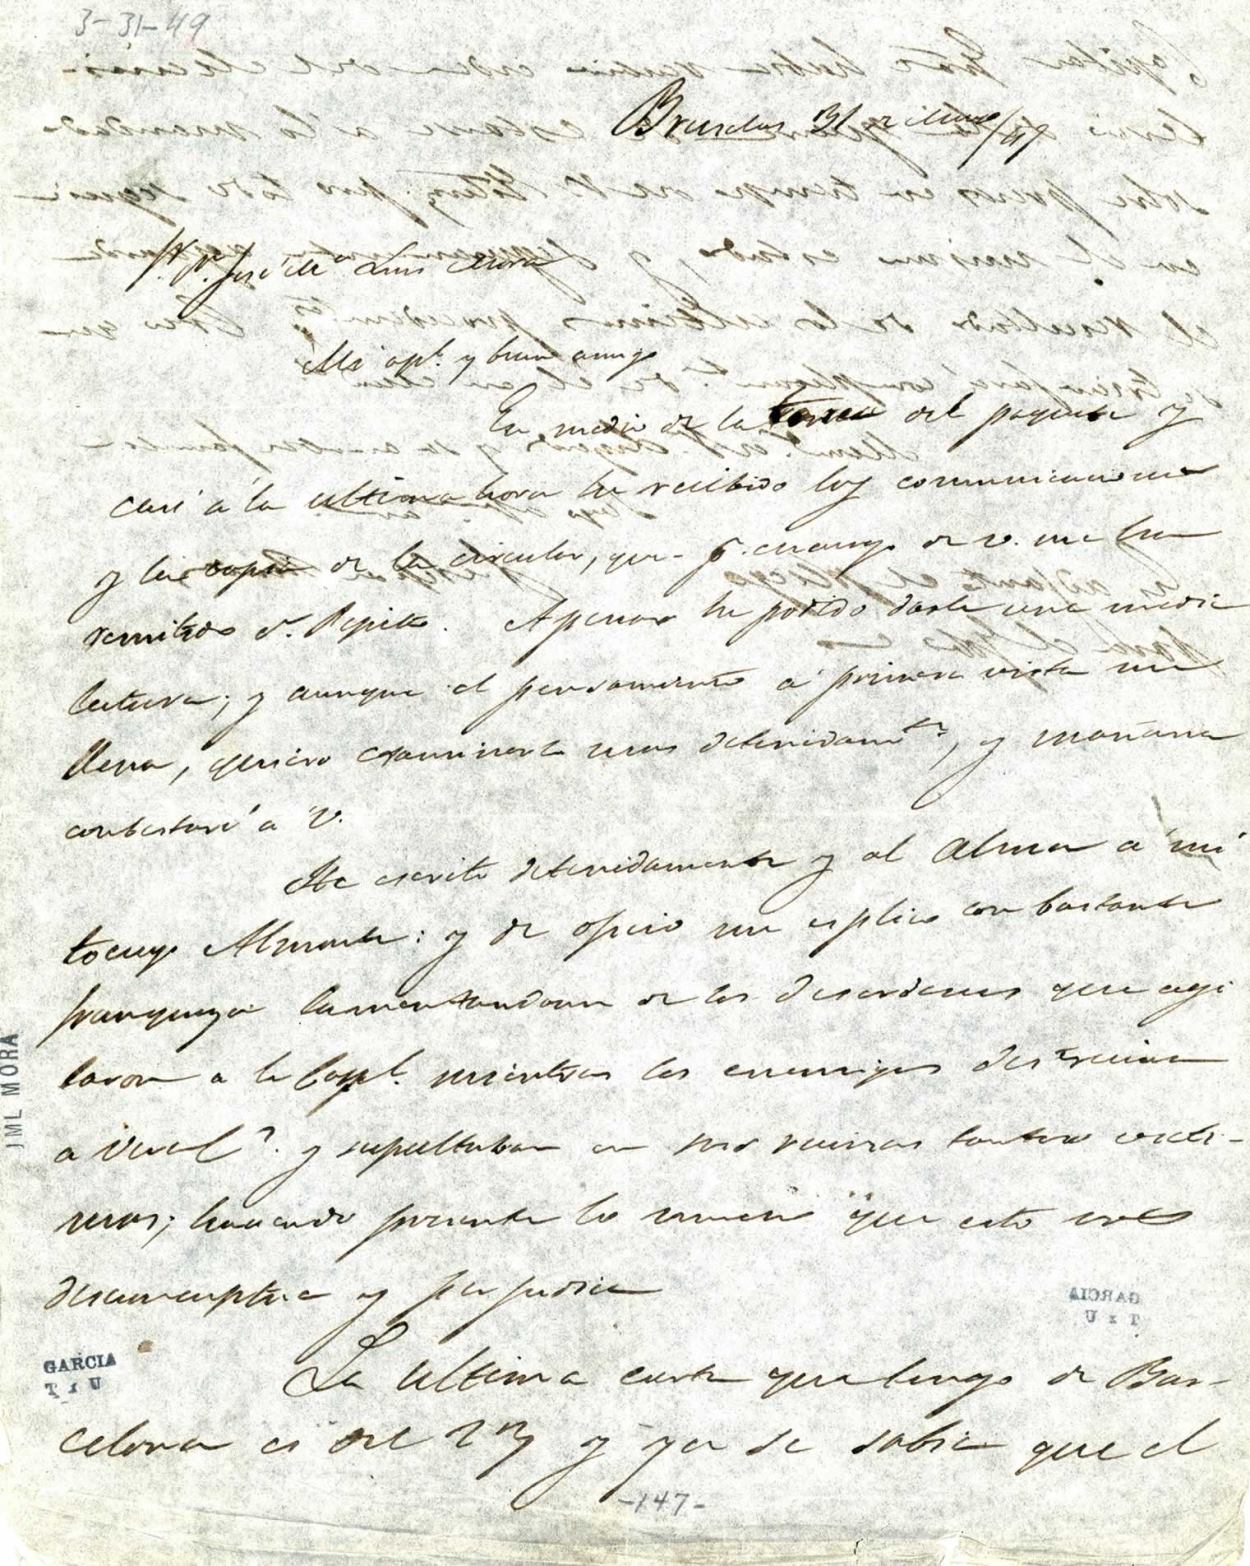 3-31-49
Bruselas 31 de Mayo/47
Sr. Dr. José Ma Luis Mora
Mi apl. y buen amigo
En medio de la tarea del paquete y
casi á la ultima hora he recibido las comunicaciones
y la copia de la circular, que pr. encargo de V. me ha
remitido Dn. Pepito. Apenas he podido darle una media
lectura; y aunque el pensamiento á primera vista me
llena, quiero examinarla mas detenidamte, y mañana
contestaré a V.
He escrito detenidamente y al alma a mi
tocayo Almonte: y de oficio me esplico con bastante
franqueza lamentandome de los desordenes que agi
taron a la Capl. mientras los enemigos destruian
a Veral. y sepultaban en sus ruinas tantas victi-
mas; haciendo presente lo mucho que esto nos
desconceptua y perjudica
La ultima carta que tengo de Bar-
celona es del 23 y ya se sabia que el
GARCIA
-147-
JML MORA